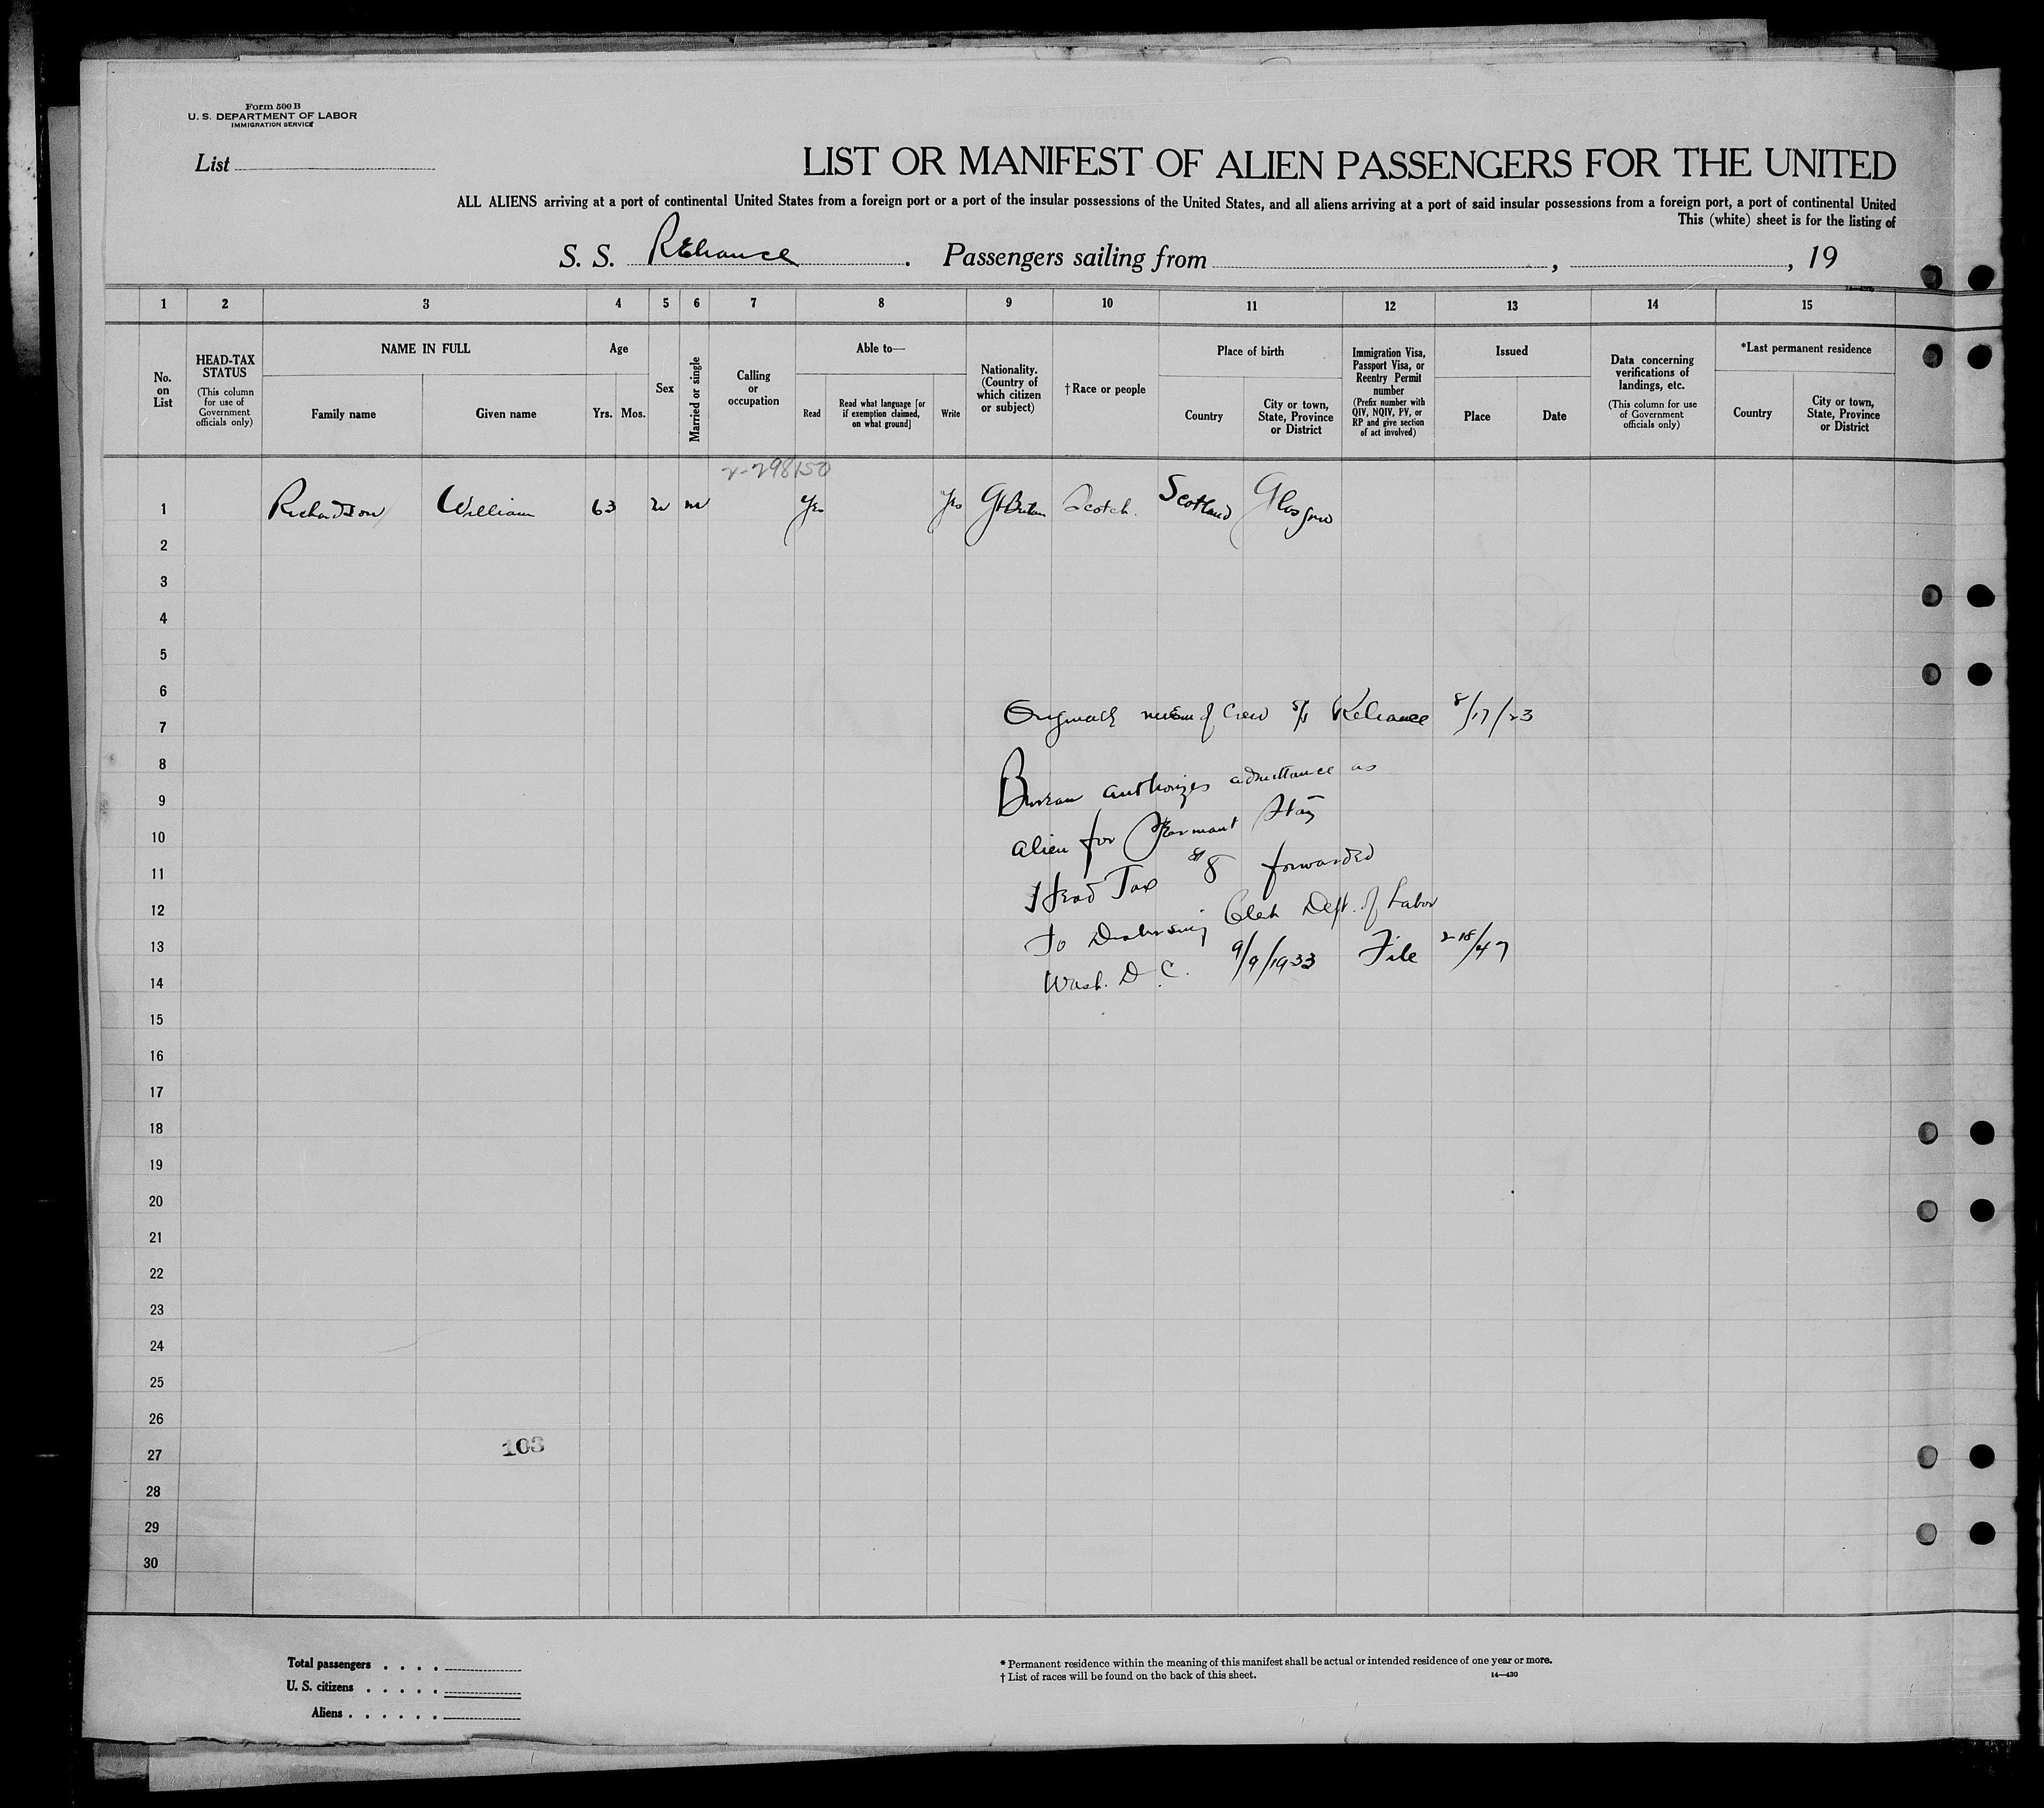 Form 500 B
U. S. DEPARTMENT OF LABOR
IMMIGRATION SERVICE
List
LIST OR MANIFEST OF ALIEN PASSENGERS FOR THE UNITED
ALL ALIENS arriving at a port of continental United States from a foreign port or a port of the insular possessions of the United States, and all aliens arriving at a port of said insular possessions from a foreign port, a port of continental United
This (white) sheet is for the listing of
S. S. Reliance. Passengers sailing from , , 19
1 2 3 4 5 6 7 8 9 10 11 12 13 14 15
No. on List
HEAD-TAX STATUS
(This column for use of Government officials only)
NAME IN FULL
Family name
Given name
Age
Yrs.
Mos.
Sex
Married or single
Calling or occupation
Able to—
Read
Read what language [or if exemption claimed, on what ground]
Write
Nationality. (Country of which citizen or subject)
†Race or people
Place of birth
Country
City or town, State, Province or District
Immigration Visa, Passport Visa, or Reentry Permit number
(Prefix number with QIV, NQIV, PV, or RP and give section of act involved)
Issued
Place
Date
Data concerning verifications of landings, etc.
(This column for use of Government officials only)
*Last permanent residence
Country
City or town, State, Province or District
2-298150
1 Richardson William 63 m Yes Yes Gt Britain Scotch Scotland Glasgow
2
3
4
5
6
Originally mem of Crew s/s Reliance 8/17/23
7
8
Bureau authorizes admittance as
9
alien for Permant Stay
10
11
Head Tax $8 forwarded
12
To Disbursing Clerk Dept. of Labor
13
Wash. D. C. 9/9/1933 File
14
15
16
17
18
19
20
21
22
23
24
25
26
27
103
28
29
30
Total passengers . . . .
U. S. citizens . . . . .
Aliens . . . . . .
* Permanent residence within the meaning of this manifest shall be actual or intended residence of one year or more.
† List of races will be found on the back of this sheet.
14—430